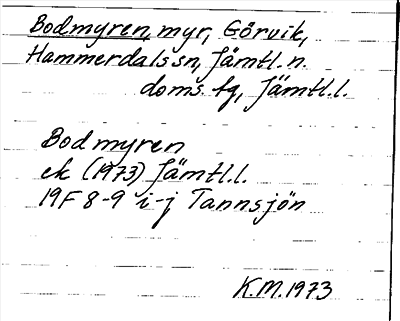 Bodmyren, myr, Görvik,
Hammerdals sn, Jämtl. n.
doms. fg, Jämtl. l.
Bodmyren
ek (1973) Jämtl. l.
19F 8-9 i-j Tannsjön
K.M. 1973